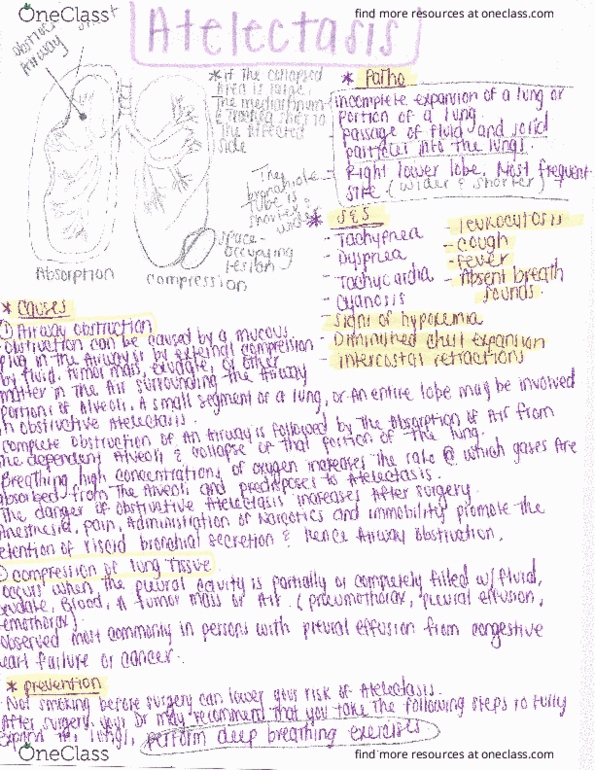 OneClass
find more resources at oneclass.com
Atelectasis
Airway
* if the collapsed
area is large,
the mediastinum
& trachea shift to
the affected
side
* Patho
incomplete expansion of a lung or
portion of a lung.
passage of fluid and solid
particles into the lungs.
- Right lower lobe, Most frequent
site (wider & shorter)
The
bronchiole
tube is
shorter &
wider
* S&S
- Tachypnea
- Dyspnea
- Tachycardia
- Cyanosis
- Signs of hypoxemia
- Diminished chest expansion
- intercostal retractions
- leukocytosis
- cough
- fever
- Absent breath
sounds.
space-
occupying
lesion
Absorption
compression
* causes
① Airway obstruction
obstruction can be caused by a mucous
plug in the Airway or by external compression
by fluid, tumor mass, exudate, or other
matter in the Air surrounding the Airway
portions of Alveoli. A small segment or a lung, or An entire lobe may be involved
n obstructive Atelectasis.
complete obstruction of An Airway is followed by the Absorption of Air from
the dependent Alveoli & collapse of that portion of the lung.
Breathing high concentrations of oxygen increases the rate @ which gases Are
absorbed from the Alveoli and predisposes to Atelectasis.
The danger of obstructive Atelectasis increases After surgery.
Anesthesia, pain, Administration of Narcotics and immobility promote the
etention of viscid bronchial secretion & hence Airway obstruction.
compression of lung tissue
occurs when the pleural cavity is partially or completely filled w/ fluid,
exudate, Blood, A tumor mass or Air. (pneumothorax, pleural effusion,
emothorax).
observed most commonly in persons with pleural effusion from congestive
eart failure or cancer.
* prevention
Not smoking before surgery can lower your risk of Atelectasis.
After surgery, your Dr may recommend that you take the following steps to fully
expand the lungs, perform deep breathing exercises
OneClass
find more resources at oneclass.com